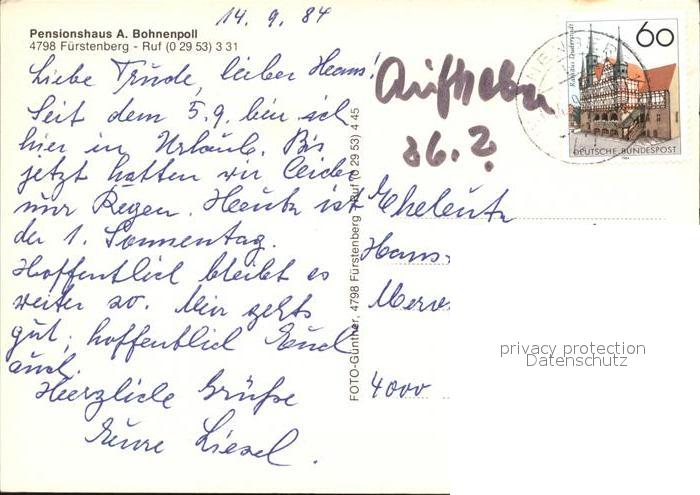 14.9.84
Pensionshaus A. Bohnenpoll
4798 Fürstenberg - Ruf (0 29 53) 3 31
Liebe Trude, lieber Hans!
Seit dem 5.9. bin ich
hier in Urlaub. Bis
jetzt hatten wir leider
nur Regen. Heute ist
der 1. Sonnentag.
Hoffentlich bleibt es
weiter so. Mir gehts
gut, hoffentlich Euch
auch.
Herzliche Grüße
Eure Liesel.
FOTO-Günther, 4798 Fürstenberg - Ruf (0 29 53) 4 45
Aufheben
86.?
Rathaus Duderstadt
60
DEUTSCHE BUNDESPOST
1984
Eheleute
Hans-
4000
privacy protection
Datenschutz